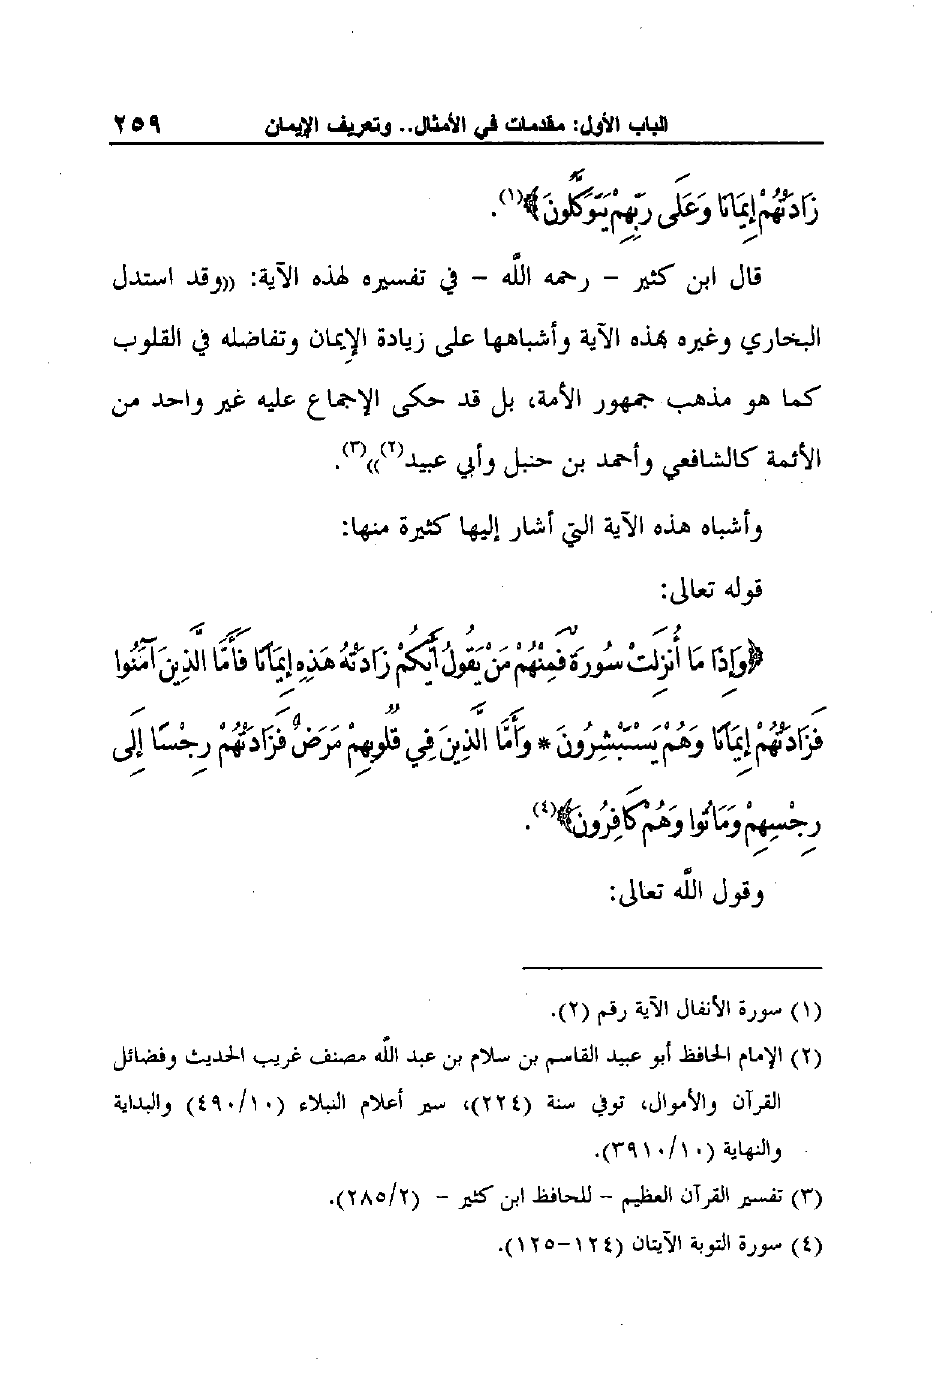 الباب الأول: مقدمات في الأمثال.. وتعريف الإيمان ٢٥٩
زَادَتْهُمْ إِيمَانًا وَعَلَى رَبِّهِمْ يَتَوَكَّلُونَ﴾(١).
قال ابن كثير – رحمه اللَّه – في تفسيره لهذه الآية: ((وقد استدل
البخاري وغيره بهذه الآية وأشباهها على زيادة الإيمان وتفاضله في القلوب
كما هو مذهب جمهور الأمة، بل قد حكى الإجماع عليه غير واحد من
الأئمة كالشافعي وأحمد بن حنبل وأبي عبيد(٢)))(٣).
وأشباه هذه الآية التي أشار إليها كثيرة منها:
قوله تعالى:
﴿وَإِذَا مَا أُنزِلَتْ سُورَةٌ فَمِنْهُمْ مَنْ يَقُولُ أَيُّكُمْ زَادَتْهُ هَذِهِ إِيمَانًا فَأَمَّا الَّذِينَ آمَنُوا
فَزَادَتْهُمْ إِيمَانًا وَهُمْ يَسْتَبْشِرُونَ * وَأَمَّا الَّذِينَ فِي قُلُوبِهِمْ مَرَضٌ فَزَادَتْهُمْ رِجْسًا إِلَى
رِجْسِهِمْ وَمَاتُوا وَهُمْ كَافِرُونَ﴾(٤).
وقول اللَّه تعالى:
(١) سورة الأنفال الآية رقم (٢).
(٢) الإمام الحافظ أبو عبيد القاسم بن سلام بن عبد اللَّه مصنف غريب الحديث وفضائل
القرآن والأموال، توفي سنة (٢٢٤)، سير أعلام النبلاء (٤٩٠/١٠) والبداية
والنهاية (٣٩١٠/١٠).
(٣) تفسير القرآن العظيم – للحافظ ابن كثير – (٢٨٥/٢).
(٤) سورة التوبة الآيتان (١٢٤–١٢٥).